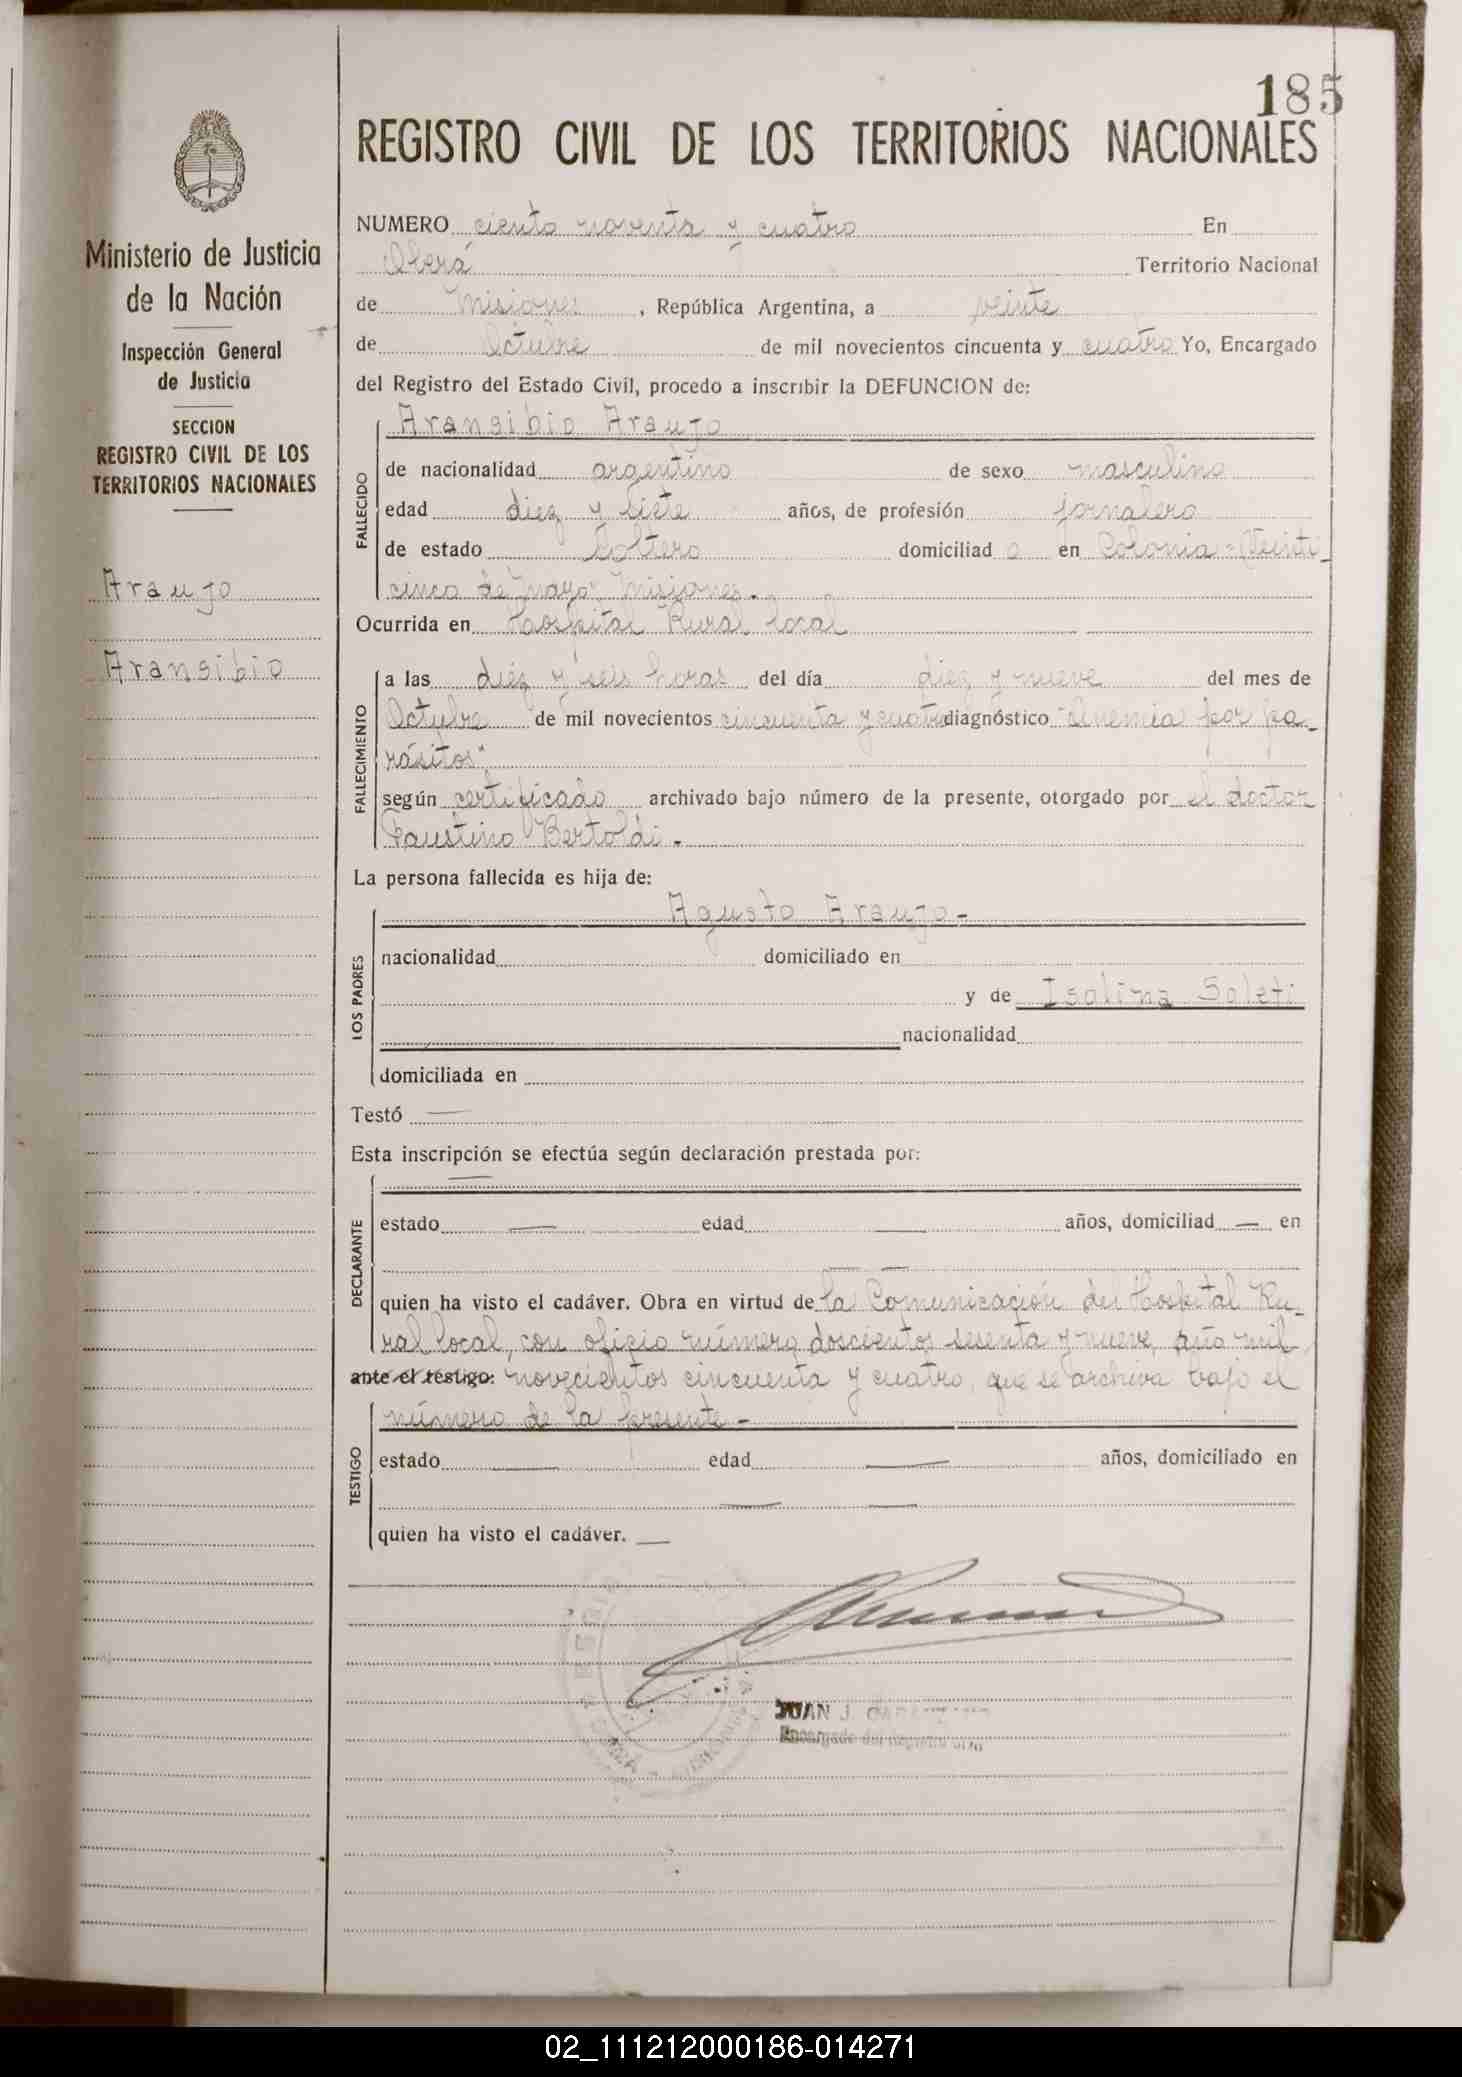 185
REGISTRO CIVIL DE LOS TERRITORIOS NACIONALES
Ministerio de Justicia
de la Nación
Inspección General
de Justicia
SECCION
REGISTRO CIVIL DE LOS
TERRITORIOS NACIONALES
Araujo
Aransibio
NUMERO ciento noventa y cuatro En
Oberá Territorio Nacional
de Misiones, República Argentina, a veinte
de Octubre de mil novecientos cincuenta y cuatro Yo, Encargado
del Registro del Estado Civil, procedo a inscribir la DEFUNCION de:
FALLECIDO
Aransibio Araujo
de nacionalidad argentino de sexo masculino
edad diez y siete años, de profesión jornalero
de estado Soltero domiciliado en Colonia "Veinti-
cinco de Mayo" Misiones.-
Ocurrida en Hospital Rural local
FALLECIMIENTO
a las diez y seis horas del día diez y nueve del mes de
Octubre de mil novecientos cincuenta y cuatro diagnóstico "Anemia por pa-
rásitos"
según certificado archivado bajo número de la presente, otorgado por el doctor
Faustino Bertoldi.-
La persona fallecida es hija de:
LOS PADRES
Agusto Araujo-
nacionalidad domiciliado en
y de Isolina Soleti
nacionalidad
domiciliada en
Testó —
Esta inscripción se efectúa según declaración prestada por:
DECLARANTE
—
estado — edad — años, domiciliad — en
— —
quien ha visto el cadáver. Obra en virtud de la Comunicación del Hospital Ru-
ral local, con oficio número doscientos sesenta y nueve, año mil
ante el testigo: novecientos cincuenta y cuatro, que se archiva bajo el
número de la presente-
TESTIGO
estado — edad — años, domiciliado en
— —
quien ha visto el cadáver. —
JUAN J.
Encargado del Registro Civil
02_111212000186-014271